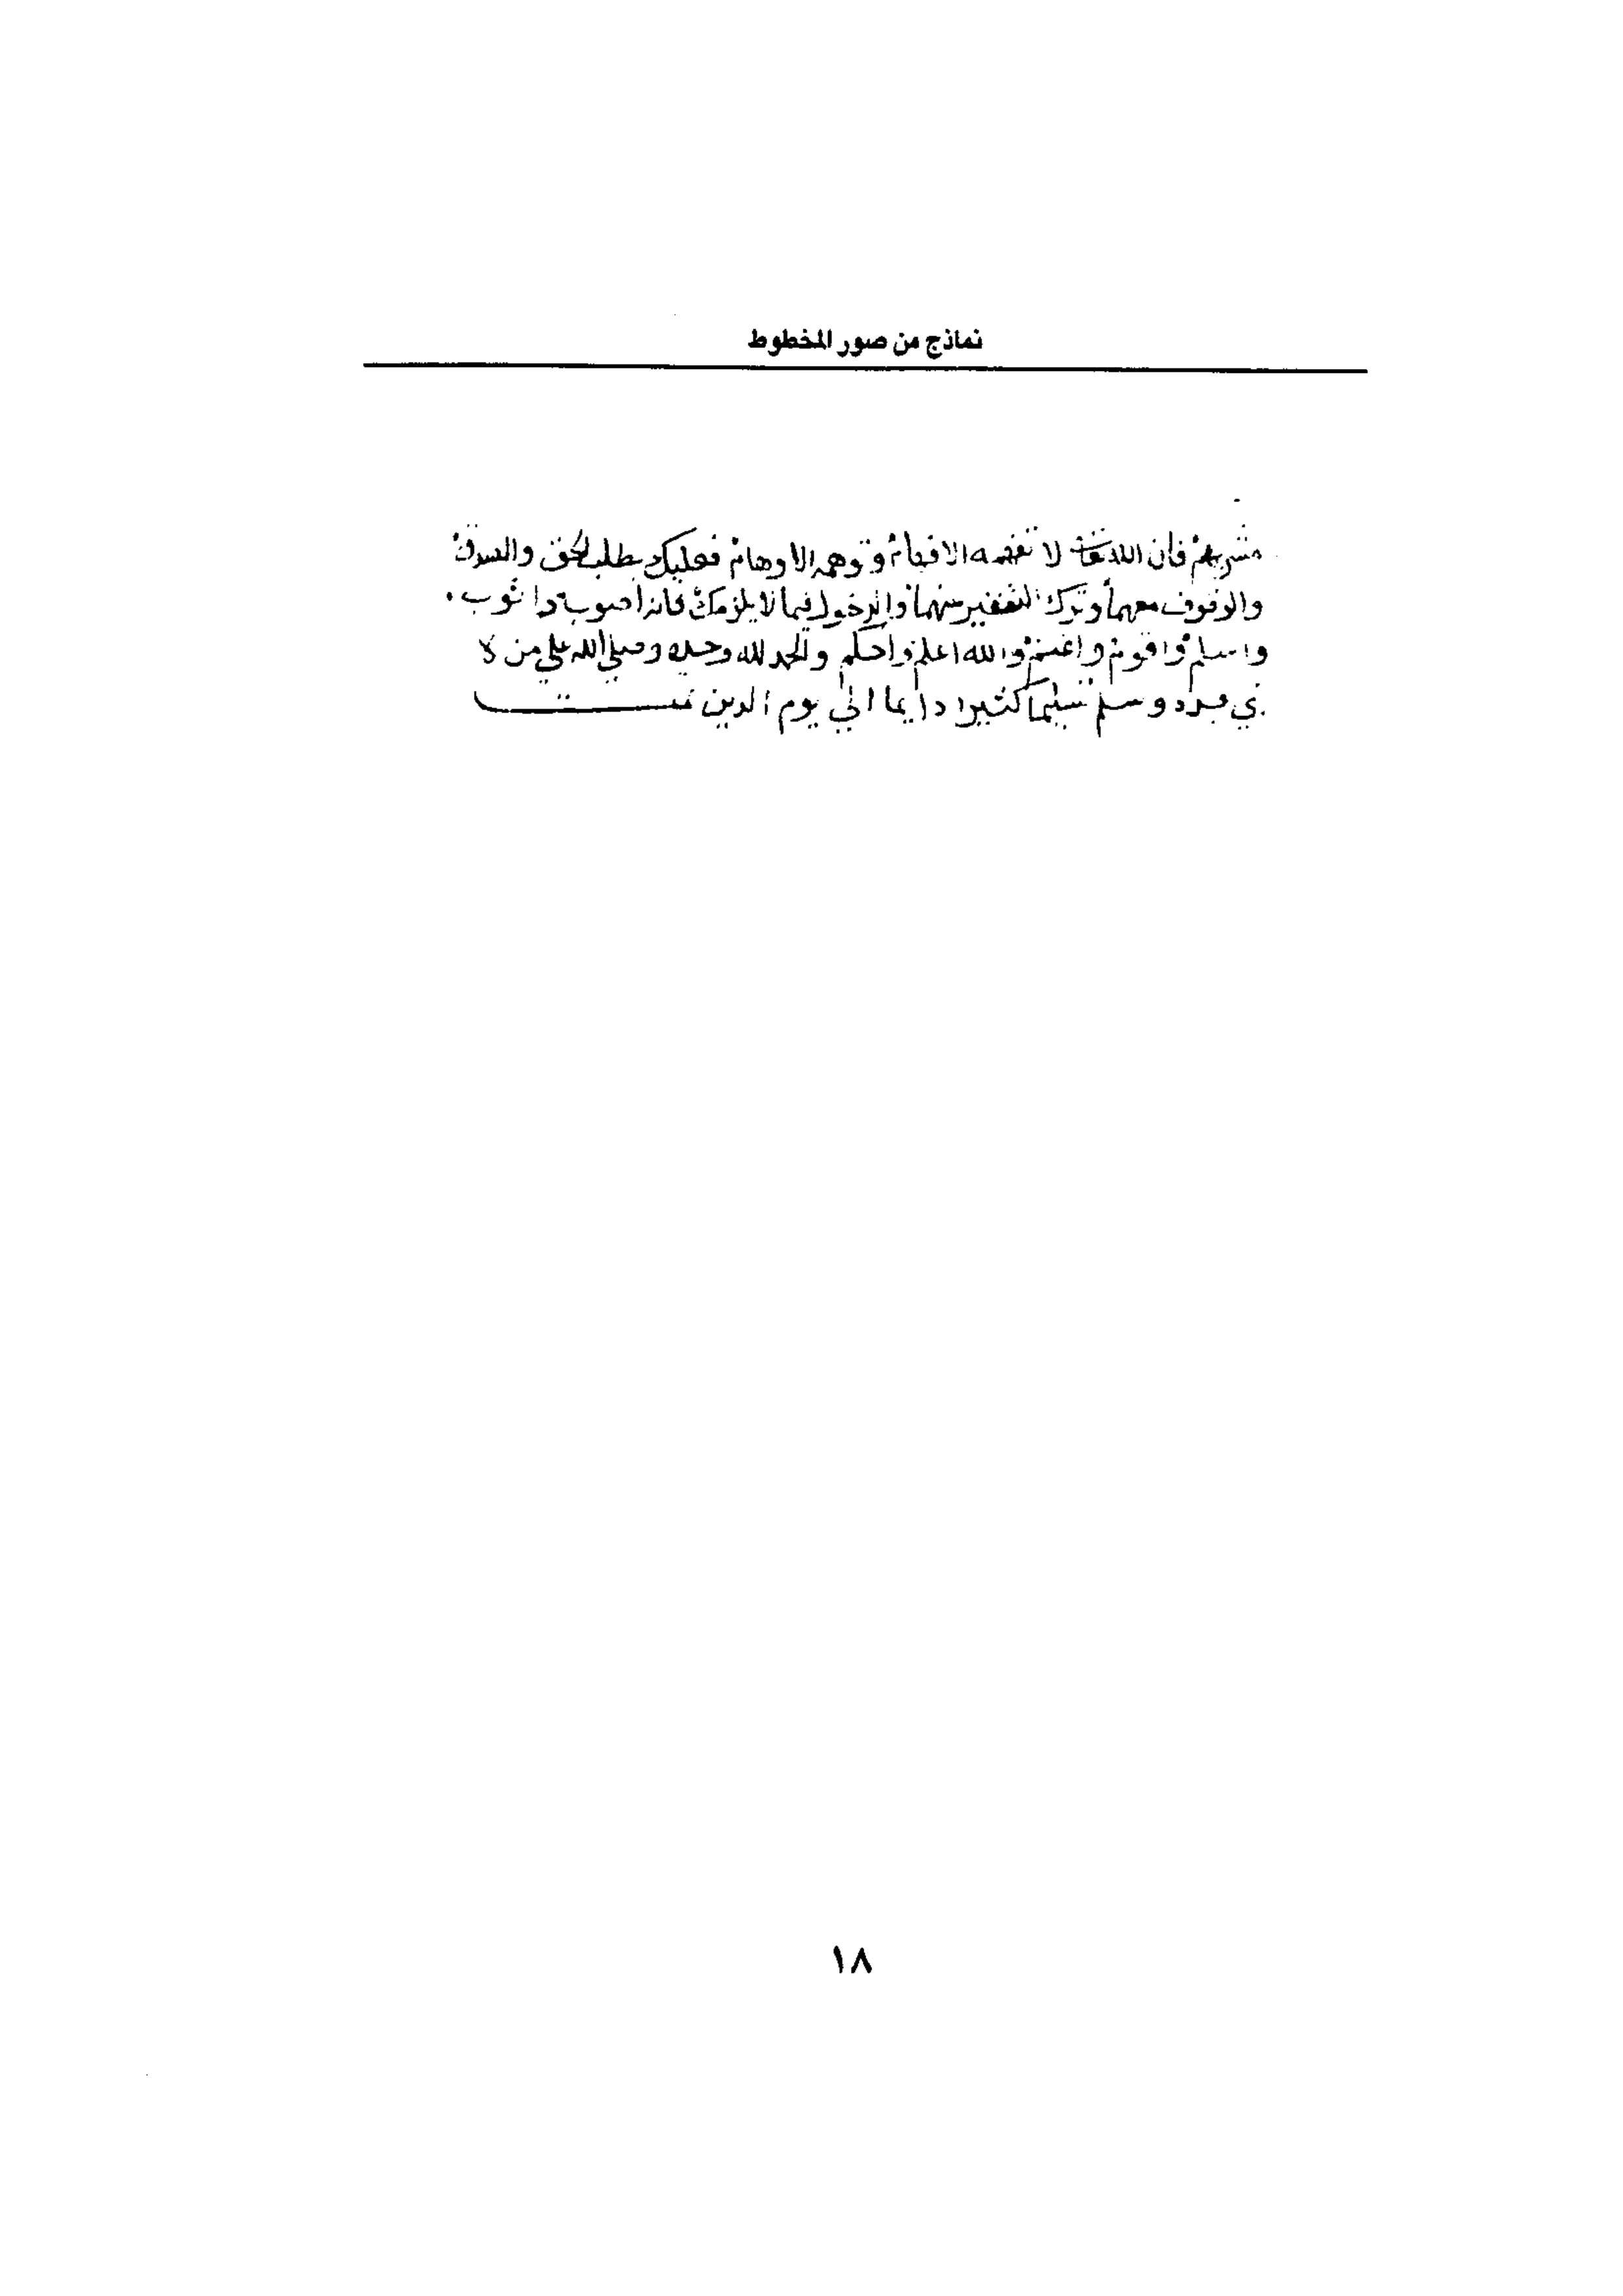 نماذج من صور المخطوط
مشربهم فان الله تعا لا تفهمه الا فهام وتوهمه الاوهام فعليك بطلب الحق والصدق
والوقوف معهما وترك التغفير منهما والدخول فيما لا يلزمك فانه اصوب واثوب
واسلم واقوم واغنم والله اعلم واحكم والحمد لله وحده وصلي الله علي من لا
نبي بعده وسلم تسليما كثيرا دايما الي يوم الدين تمت
١٨